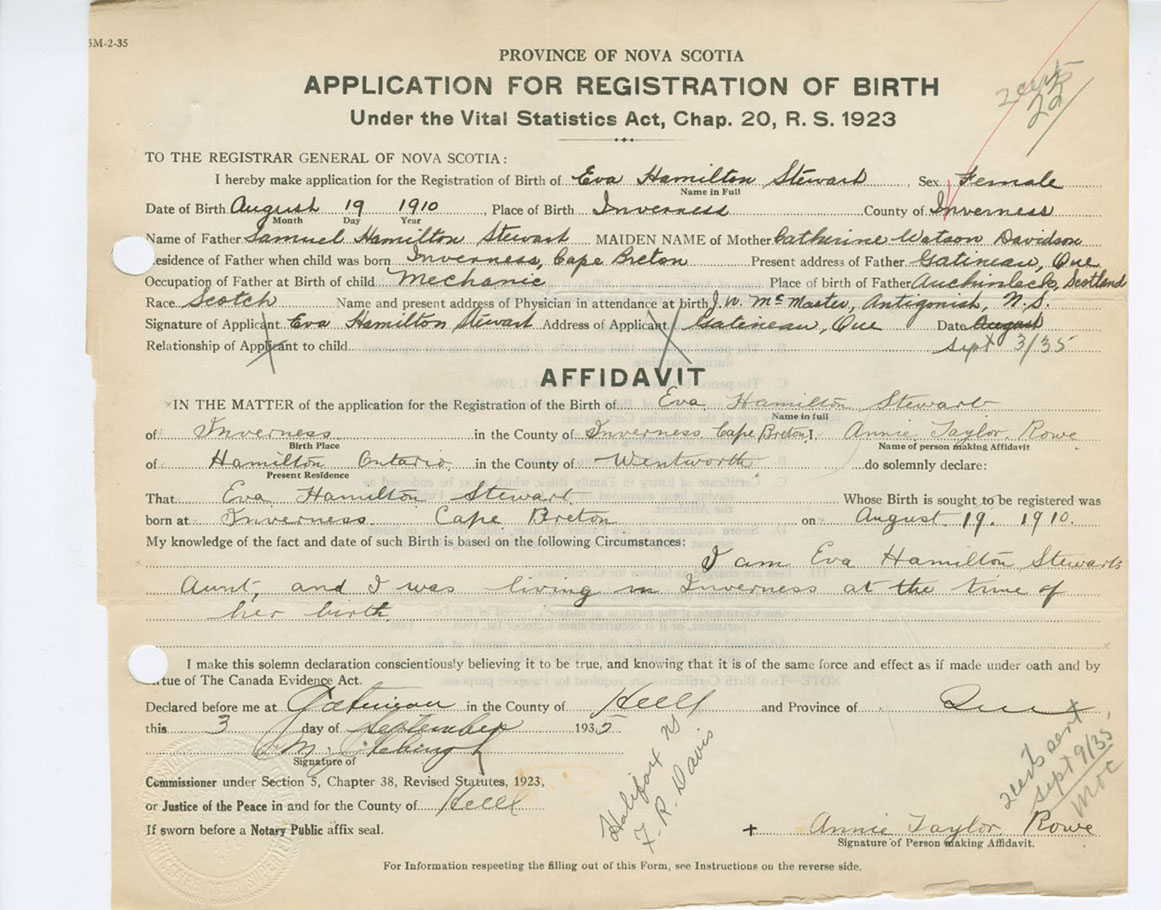 5M-2-35
PROVINCE OF NOVA SCOTIA
APPLICATION FOR REGISTRATION OF BIRTH
Under the Vital Statistics Act, Chap. 20, R. S. 1923
2 certs
22
TO THE REGISTRAR GENERAL OF NOVA SCOTIA:
I hereby make application for the Registration of Birth of Eva Hamilton Stewart, Sex Female
Name in Full
Date of Birth August 19 1910, Place of Birth Inverness County of Inverness
Month Day Year
Name of Father Samuel Hamilton Stewart MAIDEN NAME of Mother Catherine Watson Davidson
esidence of Father when child was born Inverness, Cape Breton Present address of Father Gatineau, Que
Occupation of Father at Birth of child Mechanic Place of birth of Father Auchinleck, Scotland
Race Scotch Name and present address of Physician in attendance at birth J. W. McMaster, Antigonish, N. S.
Signature of Applicant Eva Hamilton Stewart Address of Applicant Gatineau, Que Date August
Relationship of Applicant to child Sept 3/35
AFFIDAVIT
IN THE MATTER of the application for the Registration of the Birth of Eva Hamilton Stewart
Name in full
of Inverness in the County of Inverness Cape Breton I Annie Taylor Rowe
Birth Place Name of person making Affidavit
of Hamilton Ontario, in the County of Wentworth do solemnly declare:
Present Residence
That Eva Hamilton Stewart Whose Birth is sought to be registered was
born at Inverness Cape Breton on August 19. 1910.
My knowledge of the fact and date of such Birth is based on the following Circumstances:
I am Eva Hamilton Stewarts
Aunt, and I was living in Inverness at the time of
her birth
I make this solemn declaration conscientiously believing it to be true, and knowing that it is of the same force and effect as if made under oath and by
rtue of The Canada Evidence Act.
Declared before me at Gatineau in the County of Hull and Province of Que
this 3 day of September 1935
Signature of
Commissioner under Section 5, Chapter 38, Revised Statutes, 1923,
or Justice of the Peace in and for the County of Hull
If sworn before a Notary Public affix seal.
Halifax NS
F. R. Davis
2 certs sent
Sept 9/35
MOC
+ Annie Taylor Rowe
Signature of Person making Affidavit.
For Information respecting the filling out of this Form, see Instructions on the reverse side.